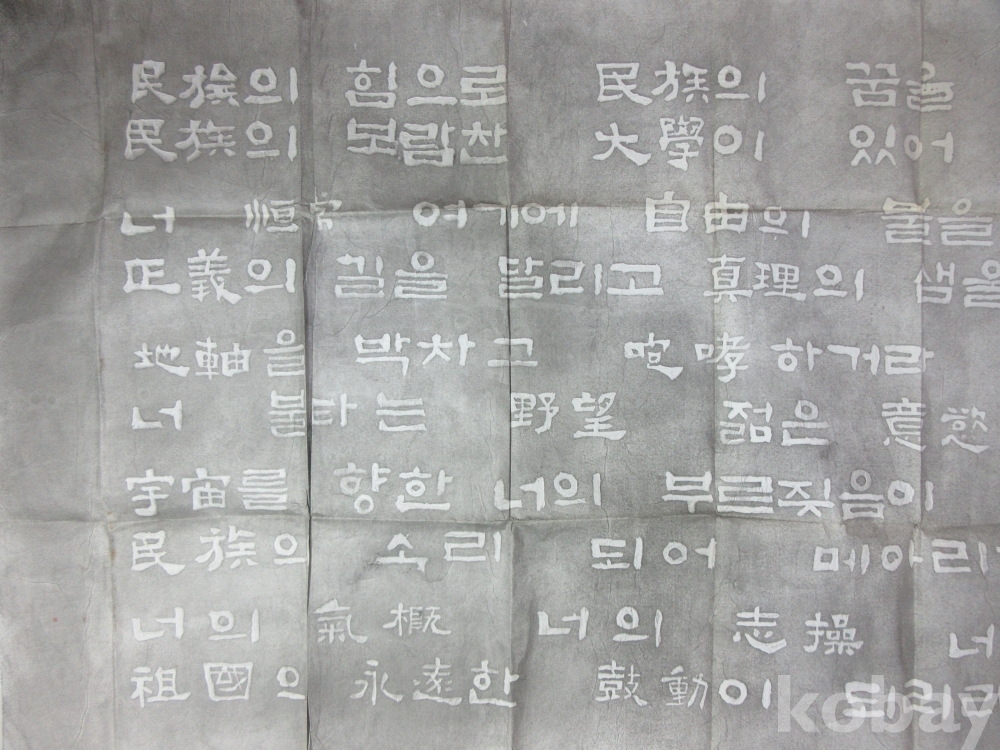 民族의 힘으로 民族의 꿈을
民族의 보람찬 大學이 있어
너 恒常 여기에 自由의 불을
正義의 길을 달리고 眞理의 샘을
地軸을 박차고 咆哮하거라
너 불타는 野望 젊은 意慾
宇宙를 향한 너의 부르짖음이
民族의 소리 되어 메아리
너의 氣槪 너의 志操 너
祖國의 永遠한 鼓動이 되리라
kobay